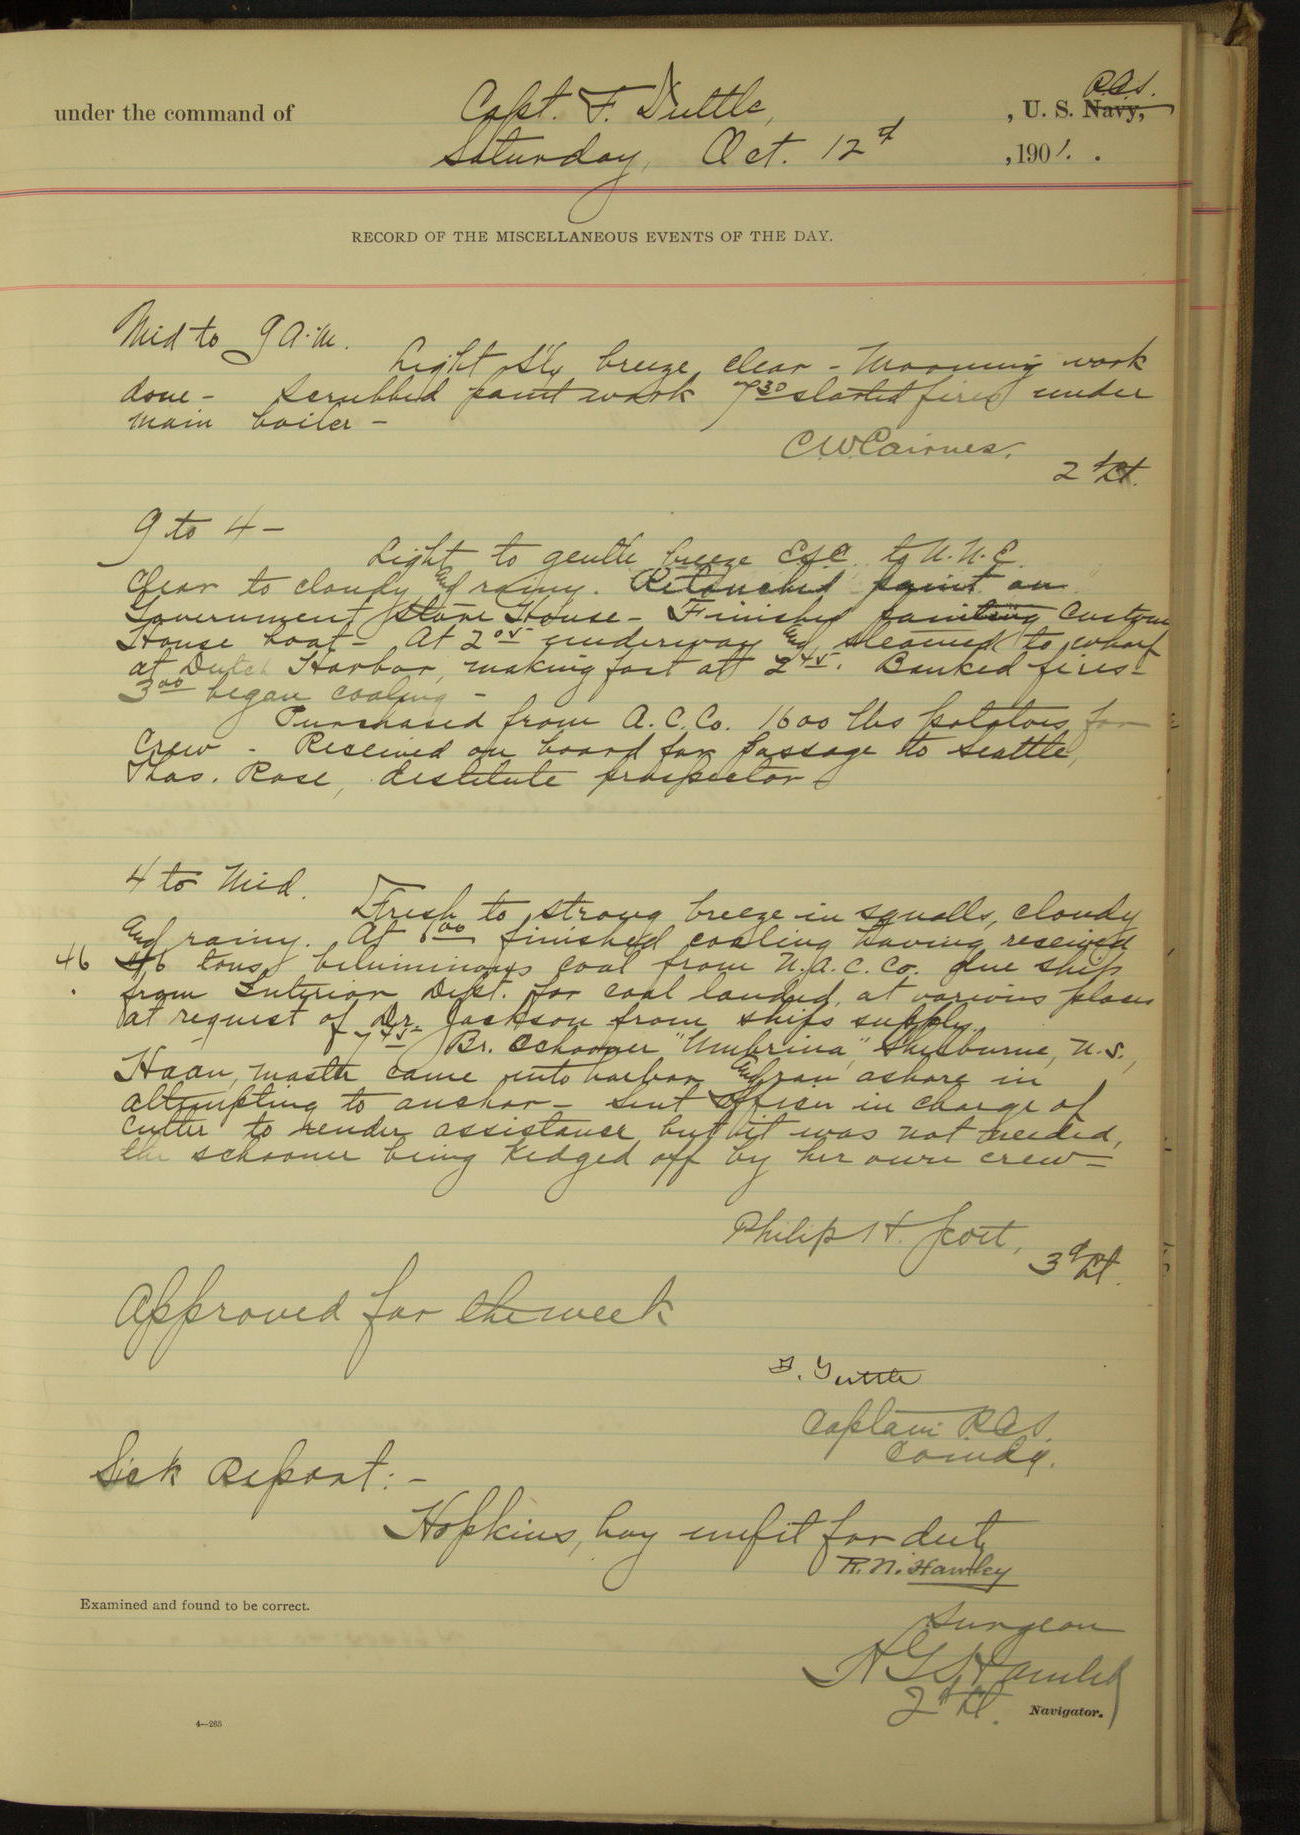 under the command of Capt. F. Tuttle, , U. S. Navy, R.C.S.
Saturday, Oct. 12th , 1901.
RECORD OF THE MISCELLANEOUS EVENTS OF THE DAY.
Mid to 9 A.M.
Light S'ly breeze, clear - Morning work
done - Scrubbed paint work 7 30 started fires under
main boiler -
C.W. Cairnes.
2d Lt.
9 to 4 -
Light to gentle breeze E.S.E. to N.N.E.
Clear to cloudy and rainy. Retouched paint on
Government Store House - Finished painting Custom
House boat - At 2 05 underway and steamed to wharf
at Dutch Harbor, making fast at 2 45. Banked fires -
3 00 began coaling -
Purchased from A.C.Co. 1600 lbs potatoes for
Crew - Received on board for passage to Seattle,
Thos. Rose, destitute prospector -
4 to Mid.
Fresh to strong breeze in squalls, cloudy
and rainy. At 6 00 finished coaling having received
46 46 tons bituminous coal from N.A.C.Co. due ship
from Interior Dept. for coal landed at various places
at request of Dr. Jackson from ship's supply.
7 45 Br. Schooner "Umbrina," Shelburne, N.S.,
Haan, master came into harbor and ran ashore in
attempting to anchor - Sent Officer in charge of
Cutter to render assistance, but it was not needed,
the schooner being kedged off by her own crew -
Philip H. Scott,
3d Lt.
Approved for the week
F. Tuttle
Captain R.C.S.
Comdg.
Sick Report: -
Hopkins, boy unfit for duty
R.N. Hawley
Surgeon
Examined and found to be correct.
H G Hamlet
2d Lt. Navigator.
4—265